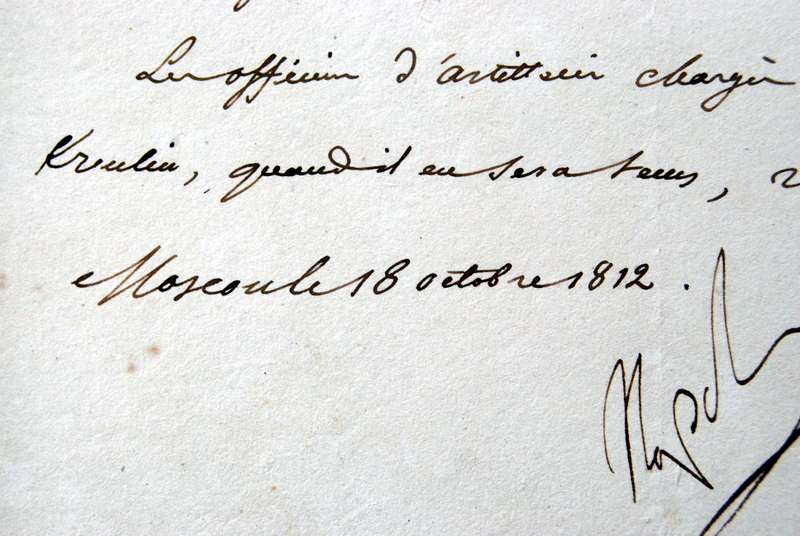 Les officiers d'artillerie chargés
Kremlin, quand il en sera tems,
Moscou le 18 octobre 1812.
Napol